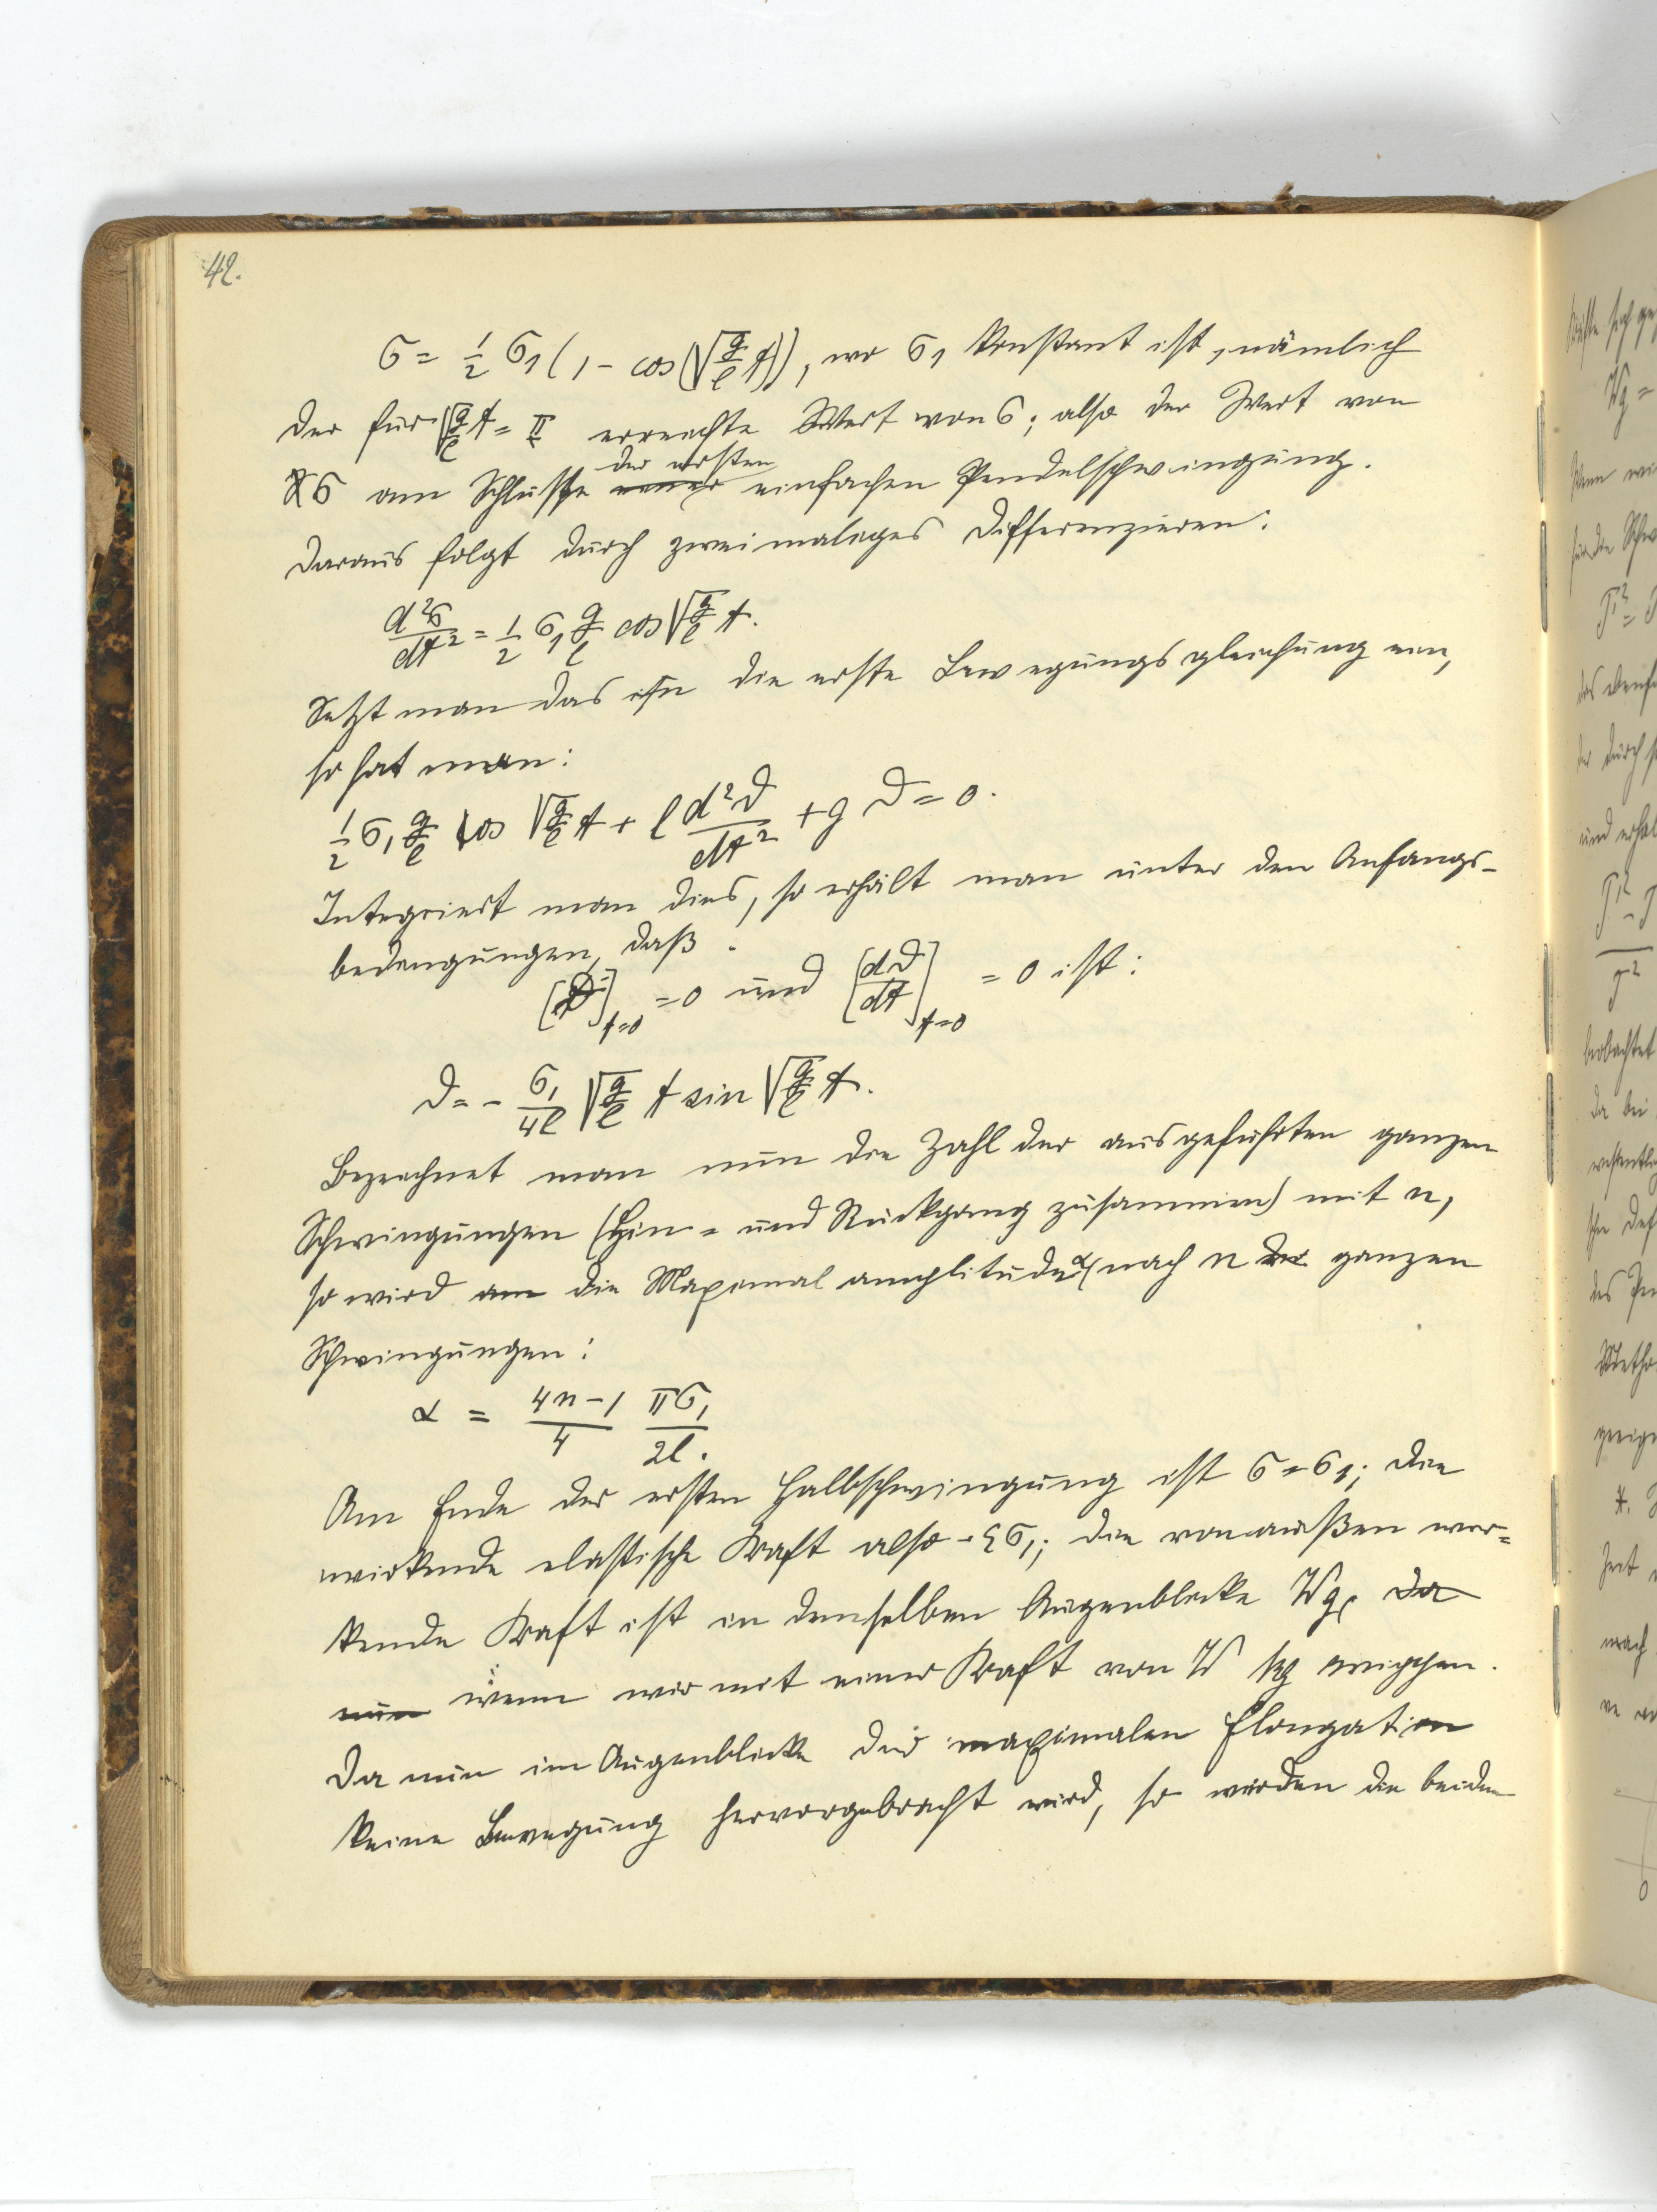 42.
σ = 1/2 σ1 (1 - cos(√(g/l) t)), wo σ1 konstant ist, nämlich
der für √(g/l) t = π erreichte Wert von σ; also der Wert von
der ersten
σ am Schlusse einer einfachen Pendelschwingung.
Daraus folgt durch zweimaliges Differenzieren:
d²σ/dt² = 1/2 σ1 g/l cos √(g/l) t.
Setzt man das in die erste Bewegungsgleichung ein,
so hat man:
1/2 σ1 g/l cos √(g/l) t + l d²ϑ/dt² + g ϑ = 0.
Integriert man dies, so erhält man unter den Anfangs-
bedengungen, daß:
[ϑ]t=0 = 0 und [dϑ/dt]t=0 = 0 ist:
ϑ = - σ1/4l √(g/l) t sin √(g/l) t.
Bezeichnet man nun die Zahl der ausgeführten ganzen
Schwingungen (Hin- und Rückgang zusammen) mit n,
so wird am die Maximalamplitude α nach n der ganzen
Schwingungen:
α = (4n-1)/4 πσ1/2l.
Am Ende der ersten Halbschwingung ist σ = σ1; die
wirkende elastische Kraft also - εσ1; die von außen wir-
kende Kraft ist in demselben Augenblicke Wg, da
nun wenn wir mit einer Kraft von W kg wippen.
Da nun im Augenblicke der maximalen Elongation
keine Bewegung hervorgebracht wird, so würden die beiden